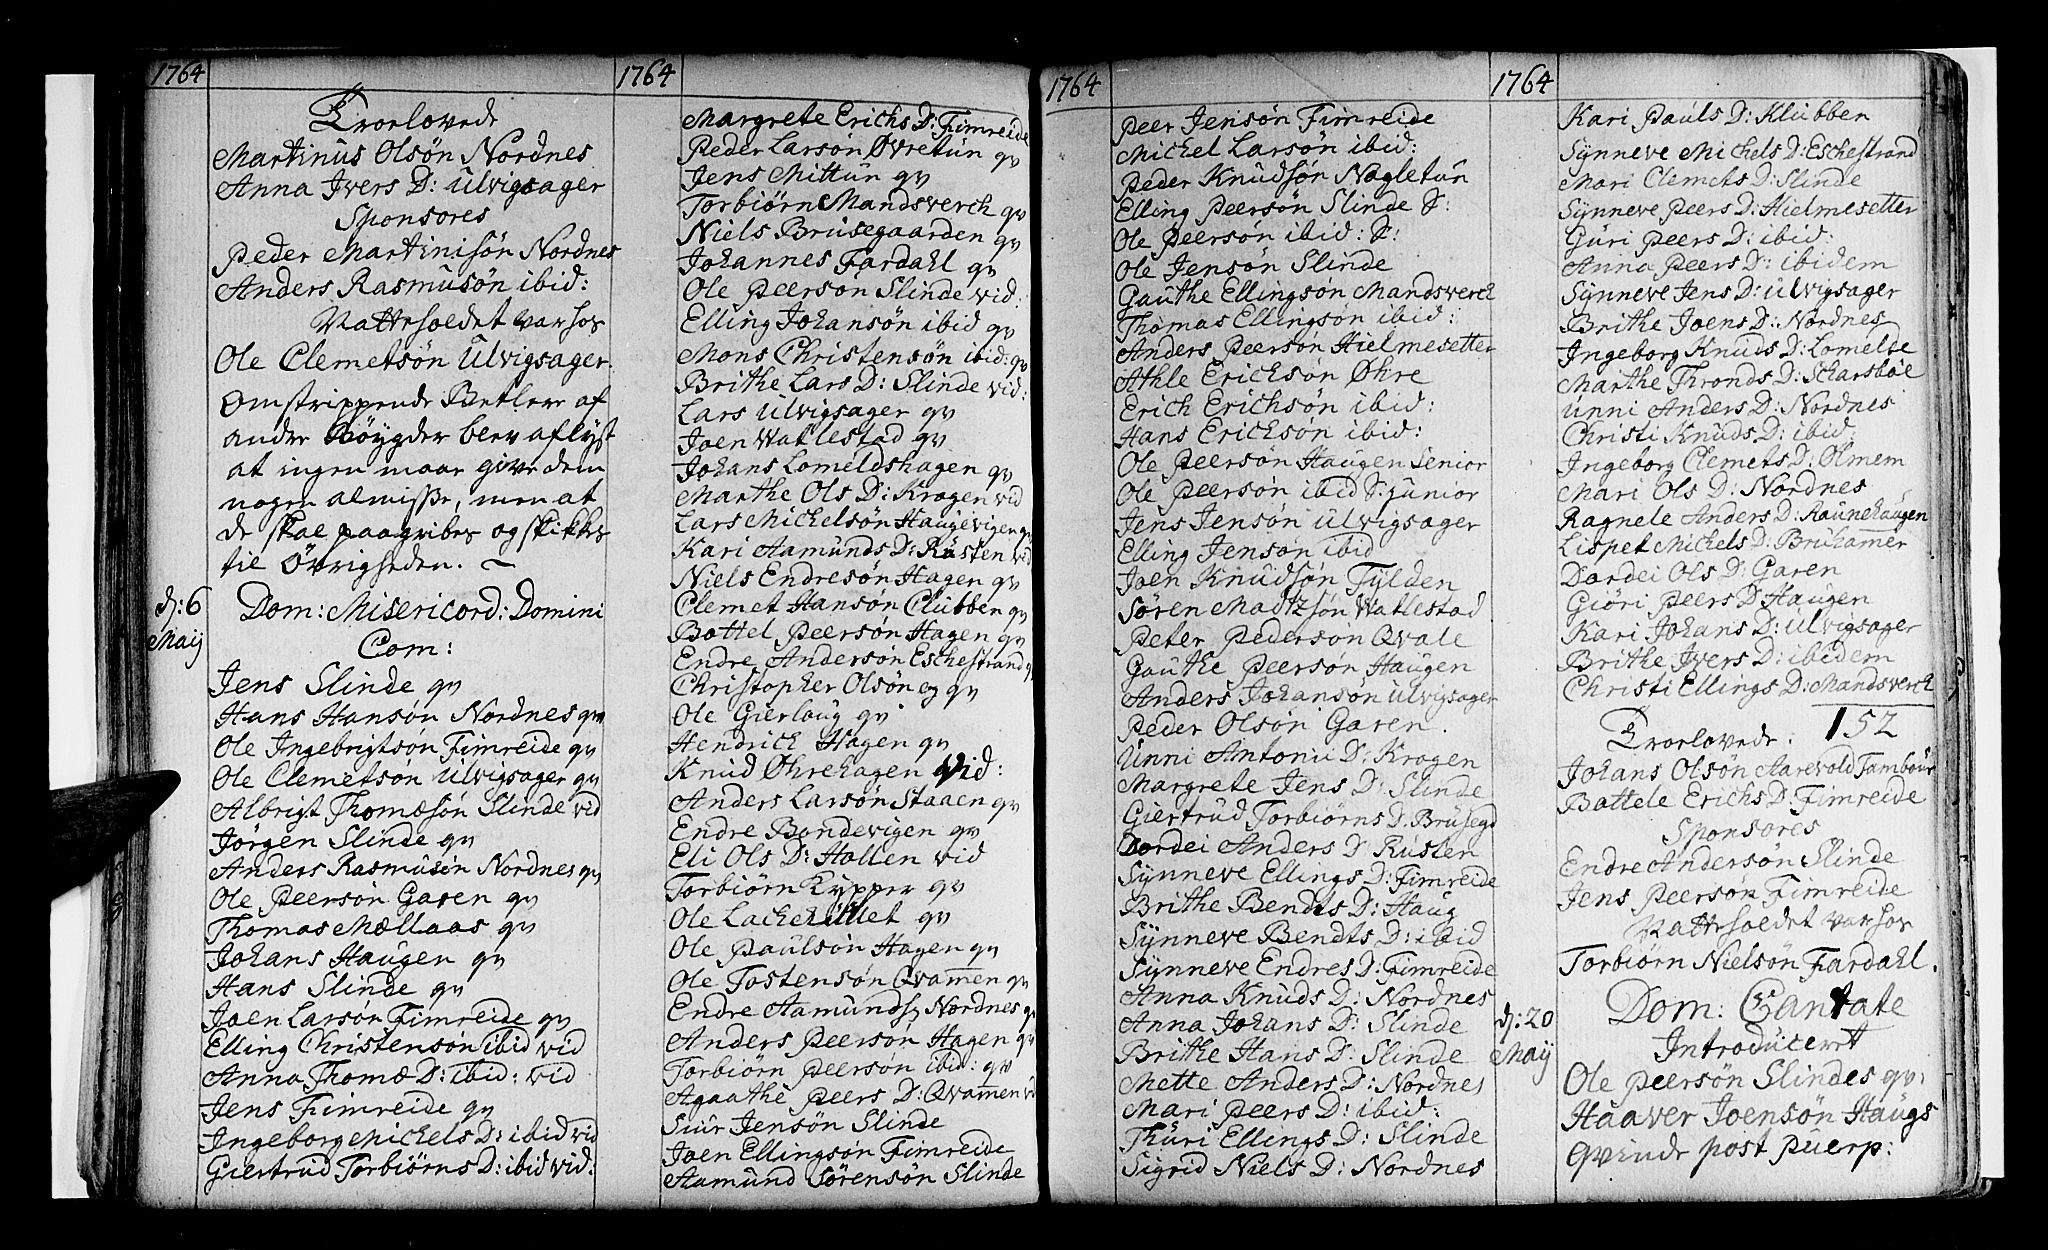 1764
Troelovede
Martinus Olsön Nordnes
Anna Ivers D: Ulvigsager
Sponsores
Peder Martinisön Nordnes
Anders Rasmusön ibid:
Natteholdet var hos
Ole Clemetsön Ulvigsager.
Omstrippende Betlere af
andre Böygder blev aflyst
at ingen maae give dem
nogen almisse, men at
de skal paagribes og skikkes
til Övrigheden. ~
d: 6 Maij
Dom: Misericord: Domini
Com:
Jens Slinde qv
Hans Hansön Nordnes qv
Ole Ingebrigtsön Fimreide qv
Ole Clemetsön Ulvigsager qv
Albrigt Thomæsön Slinde vid
Jörgen Slinde qv
Anders Rasmusön Nordnes qv
Ole Peersön Garen qv
Thomas Mællaas qv
Johans Haugen qv
Hans Slinde qv
Joen Larsön Fimreide qv
Elling Christensön ibid vid
Anna Thomæ D: ibid: vid
Jens Fimreide qv
Ingeborg Michels D: ibid vid
Giertrud Torbiörns D: ibid vid.
1764
Margrete Erichs D: Fimreide
Peder Larsön Øvretun qv
Jens Mittun qv
Torbiörn Mandsverch qv
Niels Brusegaarden qv
Johannes Fardahl qv
Ole Peersön Slinde vid.
Elling Johansön ibid qv
Mons Christensön ibid: qv
Brithe Lars D: Slinde vid:
Lars Ulvigsager qv
Joen Watlestad qv
Johans Lomeldshagen qv
Marthe Ols D: Krogen vid
Lars Michelsön Haugevigen qv
Kari Aamunds D: Rusten vid
Niels Endresön Hagen qv
Clemet Hansön Clubben qv
Bottel Peersön Hagen qv
Endre Andersön Eschestrand qv
Christopher Olsön Eg qv
Ole Gierloug qv
Hendrich Hagen qv
Knud Øhrehagen vid:
Anders Larsön Staaen qv
Endre Bondevigen qv
Eli Ols D: Hollen vid
Torbiörn Kypper qv
Ole Lachehillet qv
Ole Paulsön Hagen qv
Ole Tostensön Qvamen qv
Endre Aamunds Nordnes qv
Anders Peersön Hagen qv
Torbiörn Peersön ibid: qv
Agaathe Peers D: Qvamen vid
Siur Jensön Slinde
Joen Ellingsön Fimreide
Aamund Sörensön Slinde
1764
Peer Jensön Fimreide
Michel Larsön ibid:
Peder Knudsön Nagletun
Elling Peersön Slinde S:
Ole Peersön ibid: S:
Ole Jensön Slinde
Gauthe Ellingsön Mandsverch
Thomas Ellingsön ibid:
Anders Peersön Hielmesetter
Athle Ericksön Øhre
Erich Erichsön ibid:
Hans Ericksön ibid:
Ole Peersön Haugen Senior
Ole Peersön ibid S: junior
Jens Jensön Ulvigsager
Elling Jensön ibid
Joen Knudsön Fylden
Sören Madtzsön Watlestad
Peter Pedersön Qvale
Gauthe Peersön Haugen
Anders Johansön Ulvigsager
Peder Olsön Garen.
Unni Antonii D: Krogen
Margrete Jens D: Slinde
Giertrud Torbiörns D: Brusegd
Dordei Anders D: Rusten
Synneve Ellings D: Fimreide
Brithe Bendts D: Haug
Synneve Bendts D: ibid
Synneve Endres D: Fimreide
Anna Knuds D: Nordnes
Anna Johans D: Slinde
Brithe Hans D: Slinde
Mette Anders D: Nordnes
Mari Peers D: ibid:
Thuri Ellings D: Slinde
Sigrid Niels D: Nordnes
1764
Kari Pauls D: Klubben
Synneve Michels D: Eschestrand
Mari Clemets D: Slinde
Synneve Peers D: Hielmesetter
Guri Peers D: ibid:
Anna Peers D: ibidem
Synneve Jens D: Ulvigsager
Brithe Joens D: Nordnes
Ingeborg Knuds D: Lomelde
Marthe Thronds D: Scharsböe
Unni Anders D: Nordnes
Christi Knuds D: ibid.
Ingeborg Clemets D: Olmem
Mari Ols D: Nordnes
Ragnele Anders D: Raunehaugen
Lispet Michels D: Bruhamer
Dordei Ols D: Garen
Giöri Peers D Haugen
Kari Johans D: Ulvigsager
Brithe Ivers D: ibidem
Christi Ellings D: Mandsverch
152
Troelovede:
Johans Olsön Aarevold Tambour
Bottele Erichs D: Fimreide
Sponsores
Endre Andersön Slinde
Jens Peersön Fimreide
Natteholdet var hos
Torbiörn Nielsön Fardahl.
d: 20 Maij
Dom: Cantate
Introduceret
Ole Peersön Slindes qv:
Haaver Joensön Haugs
Qvinde post Puerp: